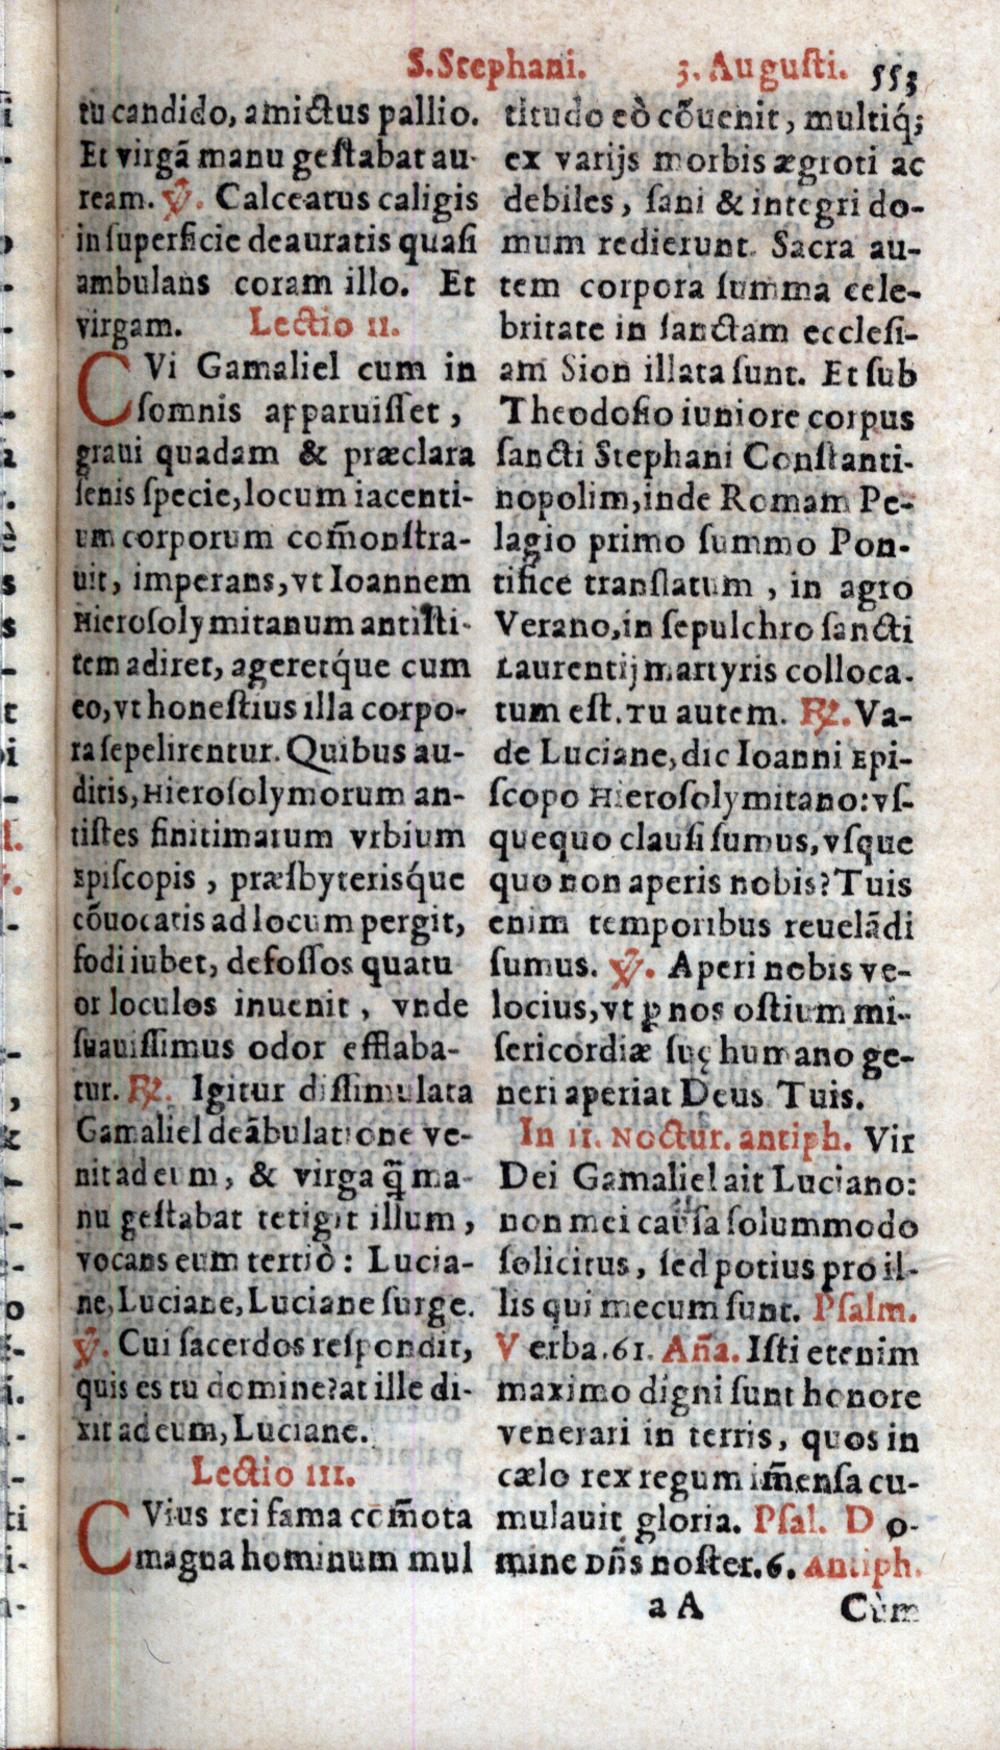 S. Stephani. 3. Augusti. 553
tu candido, amictus pallio.
Et virgã manu gestabat au-
ream. ℣. Calceatus caligis
in superficie deauratis quasi
ambulans coram illo. Et
virgam. Lectio II.
CVi Gamaliel cum in
somnis apparuisset,
graui quadam & præclara
senis specie, locum iacenti-
um corporum com̃onstra-
uit, imperans, vt Ioannem
Hierosolymitanum antisti-
tem adiret, ageretq́ue cum
eo, vt honestius illa corpo-
ra sepelirentur. Quibus au-
ditis, Hierosolymorum an-
tistes finitimarum vrbium
Episcopis, præsbyterisq́ue
cõuocatis ad locum pergit,
fodi iubet, defossos quatu
or loculos inuenit, vnde
suauissimus odor efflaba-
tur. ℟. Igitur dissimulata
Gamaliel deãbulatione ve-
nit ad eum, & virga q̃ ma-
nu gestabat tetigit illum,
vocans eum tertiò: Lucia-
ne, Luciane, Luciane surge.
℣. Cui sacerdos respondit,
quis es tu domine? at ille di-
xit ad eum, Luciane.
Lectio III.
CVius rei fama com̃ota
magna hominum mul
titudo eò cõuenit, multiq́;
ex varijs morbis ægroti ac
debiles, sani & integri do-
mum redierunt. Sacra au-
tem corpora summa cele-
britate in sanctam ecclesi-
am Sion illata sunt. Et sub
Theodosio iuniore corpus
sancti Stephani Constanti-
nopolim, inde Romam Pe-
lagio primo summo Pon-
tifice translatum, in agro
Verano, in sepulchro sancti
Laurentij martyris colloca-
tum est. Tu autem. ℟. Va-
de Luciane, dic Ioanni Epi-
scopo Hierosolymitano: vs-
quequo clausi sumus, vsque
quo non aperis nobis? Tuis
enim temporibus reuelãdi
sumus. ℣. Aperi nobis ve-
locius, vt ꝑ nos ostium mi-
sericordiæ suę humano ge-
neri aperiat Deus. Tuis.
In II. Noctur. antiph. Vir
Dei Gamaliel ait Luciano:
non mei causa solummodo
solicitus, sed potius pro il-
lis qui mecum sunt. Psalm.
Verba. 61. Añа. Isti etenim
maximo digni sunt honore
venerari in terris, quos in
cælo rex regum im̃ensa cu-
mulauit gloria. Psal. Do-
mine Dñs noster. 6. Antiph.
aA Cùm